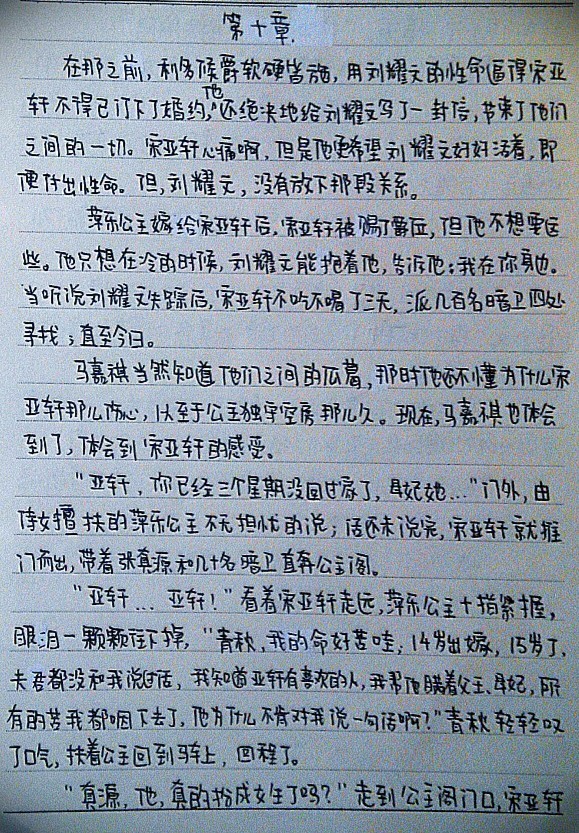 第十章.
在那之前,利多候爵软硬皆施,用刘耀文的性命逼得宋亚
轩不得已订下了婚约,他还绝决地给刘耀文写了一封信,节束了他们
之间的一切。宋亚轩心痛啊,但是他更希望刘耀文好好活着,即
便付出性命。但,刘耀文,没有放下那段关系。
萍乐公主嫁给宋亚轩后,宋亚轩被赐了爵位,但他不想要这
些。他只想在冷的时候,刘耀文能抱着他,告诉他:我在你身边。
当听说刘耀文失踪后,宋亚轩不吃不喝了三天,派几百名暗卫四处
寻找;直至今日。
马嘉祺当然知道他们之间的瓜葛,那时他还不懂为什么宋
亚轩那么伤心,以至于公主独守空房那么久。现在,马嘉祺也体会
到了,体会到宋亚轩的感受。
"亚轩,你已经三个星期没回过家了,母妃她..."门外,由
侍女搀扶的萍乐公主不无担忧的说;话还未说完,宋亚轩就推
门而出,带着张真源和几十名暗卫直奔公主阁。
"亚轩...亚轩!"看着宋亚轩走远,萍乐公主十指紧握,
眼泪一颗颗往下掉,"青秋,我的命好苦哇,14岁出嫁,15岁了,
夫君都没和我说过话,我知道亚轩有喜欢的人,我帮他瞒着父王、母妃,所
有的苦我都咽下去了,他为什么不肯对我说一句话啊?"青秋轻轻叹
了口气,扶着公主回到马车上,回程了。
"真源,他,真的扮成女生了吗?"走到公主阁门口,宋亚轩